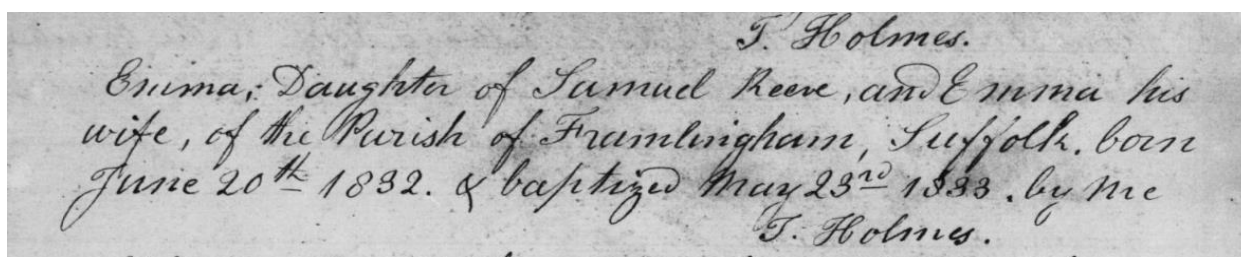 T. Holmes.
Emma, Daughter of Samuel Reeve, and Emma his
wife, of the Parish of Framlingham, Suffolk. born
June 20th 1832. & baptized May 23rd 1833. by me
T. Holmes.